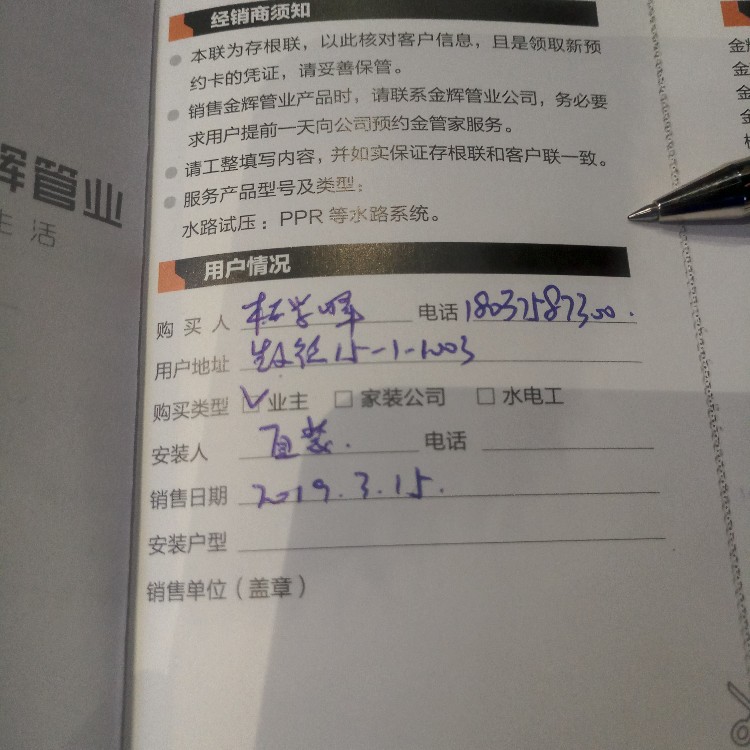 经销商须知
本联为存根联，以此核对客户信息，且是领取新预
约卡的凭证，请妥善保管。
销售金辉管业产品时，请联系金辉管业公司，务必要
求用户提前一天向公司预约金管家服务。
请工整填写内容，并如实保证存根联和客户联一致。
服务产品型号及类型：
水路试压：PPR 等水路系统。
辉管业
生活
用户情况
购买人 电话 18037587300.
用户地址 15-1-1003
购买类型 ☑业主 □ 家装公司 □ 水电工
安装人 自装. 电话
销售日期 2019.3.15.
安装户型
销售单位（盖章）
金